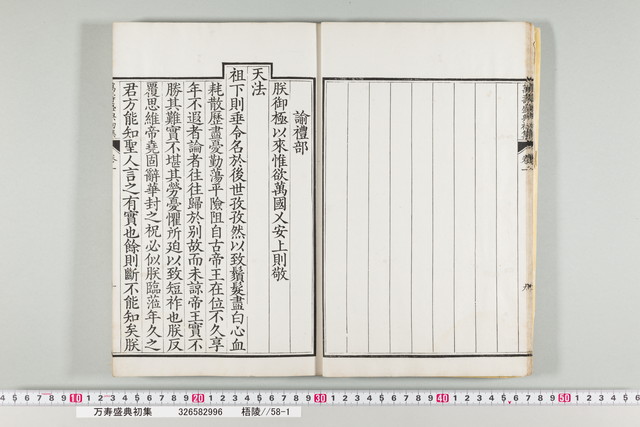 諭禮部
朕御極以來惟欲萬國乂安上則敬
天法
祖下則垂令名於後世孜孜然以致鬚髮盡白心血
耗散歷盡憂勤蕩平險阻自古帝王在位不久享
年不遐者論者往往歸於別故而未諒帝王實不
勝其難實不堪其勞憂懼所廹以致短祚也朕反
覆思維帝堯固辭華封之祝必似朕臨蒞年久之
君方能知聖人言之有實也餘則斷不能知矣朕
10 20 30 40 50 60
万寿盛典初集 326582996 梧陵//58-1